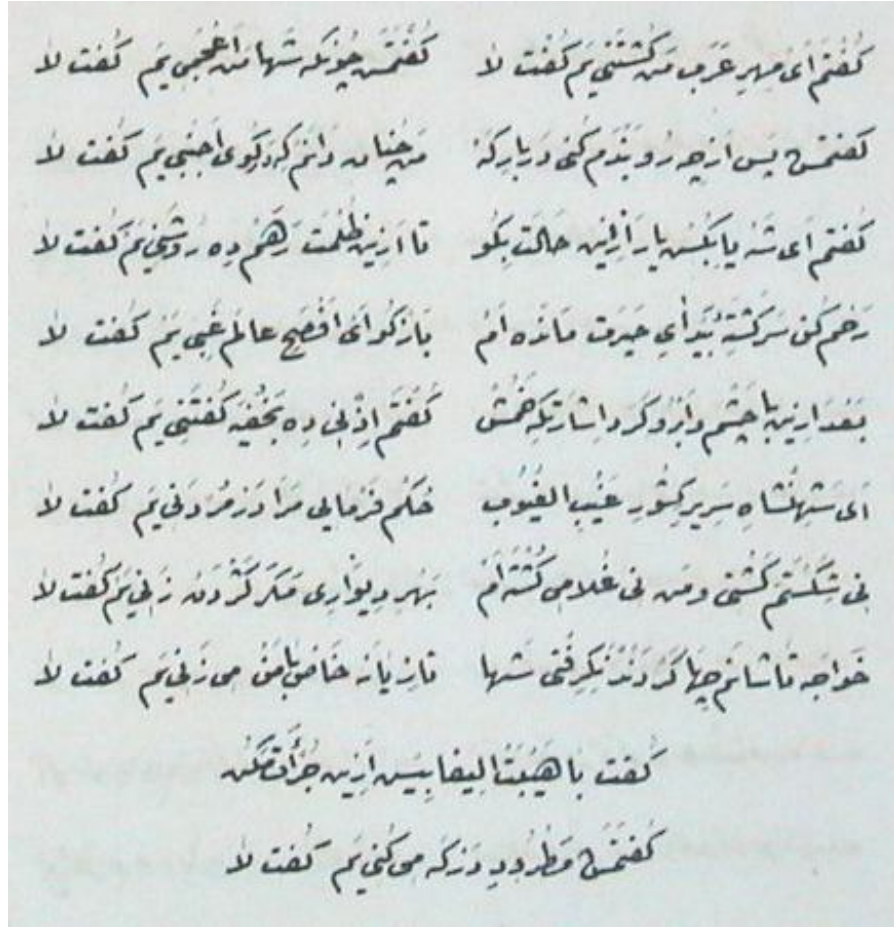 گفتم ای مهر عرب من کشتنی یم گفت لا گفتمش چونکه شها من اعجمی یم گفت لا
گفتمش پس از چه رو بندم کنی دربارکه من چنان دانم که درکوی اجنبی یم گفت لا
گفتم ای شه یا بکش یا را ازین حالت بگو تا ازین ظلمت رهم ده روشنی یم گفت لا
رحم کن سرکشته بیدای حیرت مانده ام بازگو ای افصح عالم غبی یم گفت لا
بعد ازین با چشم و ابرو کرد اشارت که خمش گفتم اذنی ده بخفیه گفتنی یم گفت لا
ای شهنشاه سریر کشور غیب الغیوب حکم فرمایی مرا در زمره دنی یم گفت لا
نی شکستم کشتی و من نی غلامی کشته ام بهر دیواری مگر گردن زنی یم گفت لا
خواجه تاشانم چها کردند نگرفتی شها تازیانه خاص با من می زنی یم گفت لا
گفت با هیبت الیفا بیس ازین جرأت مکن
گفتمش مطرود درگه می کنی یم گفت لا